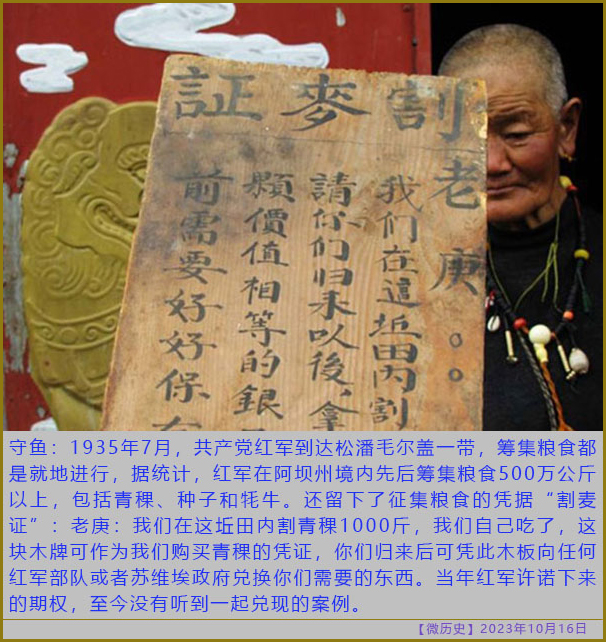 割麥証
老庚。。
我们在這坵田内割
請你们归来以後、拿
颗價值相等的銀
前需要好好保
守鱼：1935年7月，共产党红军到达松潘毛尔盖一带，筹集粮食都
是就地进行，据统计，红军在阿坝州境内先后筹集粮食500万公斤
以上，包括青稞、种子和牦牛。还留下了征集粮食的凭据“割麦
证”：老庚：我们在这坵田内割青稞1000斤，我们自己吃了，这
块木牌可作为我们购买青稞的凭证，你们归来后可凭此木板向任何
红军部队或者苏维埃政府兑换你们需要的东西。当年红军许诺下来
的期权，至今没有听到一起兑现的案例。
【微历史】2023年10月16日